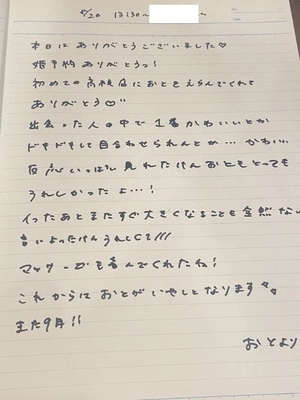 6/20 13:30〜 〜
本日はありがとうございました♡
婚予約ありがとうっ!
初めての高松店におとをえらんでくれて
ありがとう♡
出会った人の中で1番かわいいとか
ドキドキして目合わせられんとか… かわいい
反応いっぱい見れたけんおともとっても
うれしかったよ…!
イったあとまたすぐ大きくなることも全然ない
言いよったけんうれしくて///
マッサージも喜んでくれたね!
これからはおとがいやしとなります
また9月!!
おとより